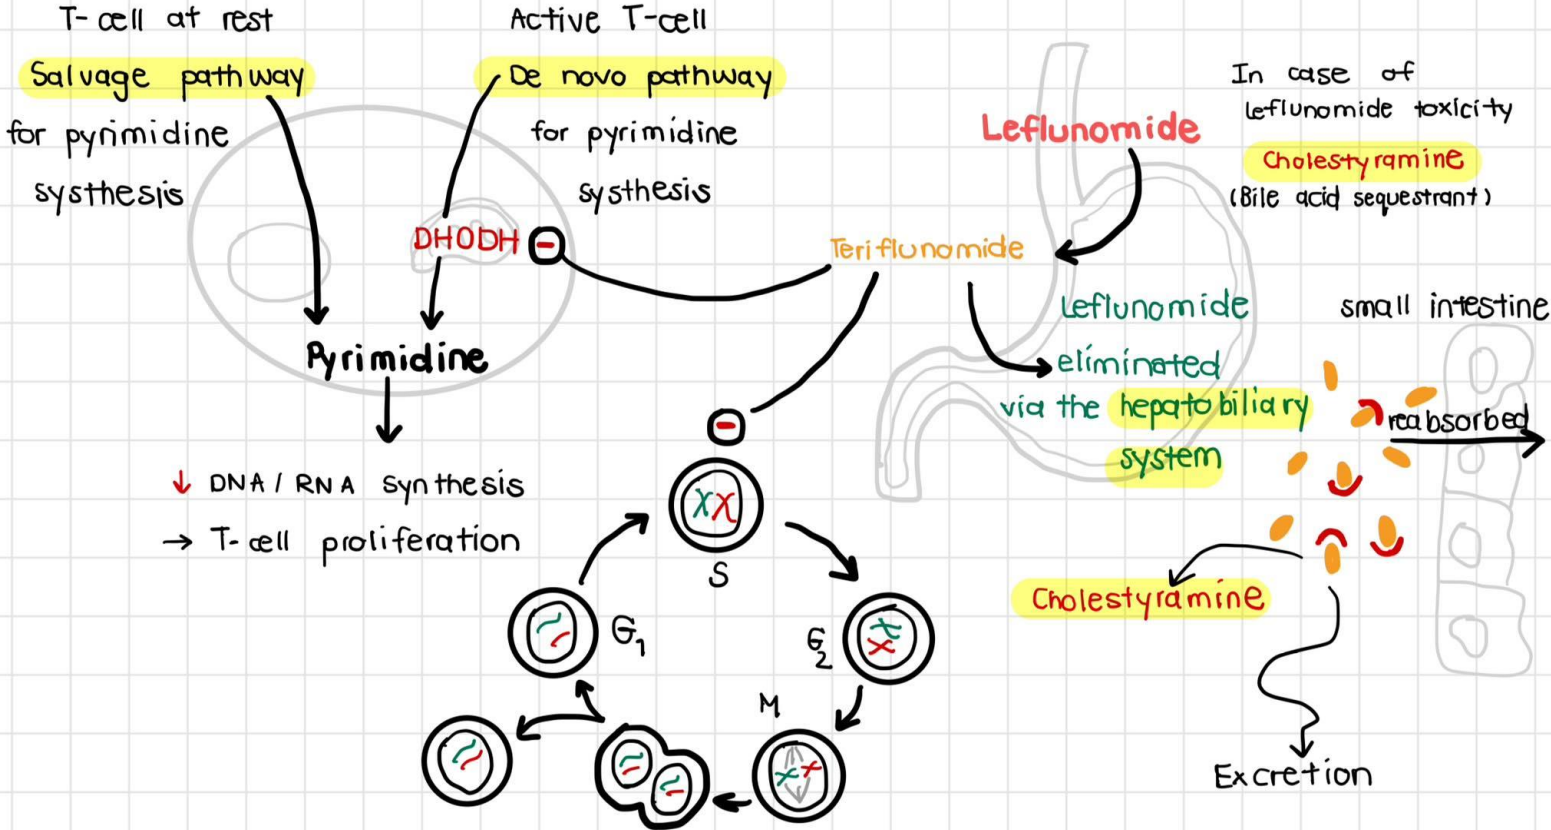 T-cell at rest
Salvage pathway
for pyrimidine
systhesis
Active T-cell
De novo pathway
for pyrimidine
systhesis
DHODH
Pyrimidine
↓ DNA / RNA synthesis
→ T-cell proliferation
Leflunomide
Teriflunamide
Leflunomide
eliminated
via the hepatobiliary
system
In case of
leflunomide toxicity
Cholestyramine
(Bile acid sequestrant)
small intestine
reabsorbed
Cholestyramine
Excretion
S
G1
G2
M